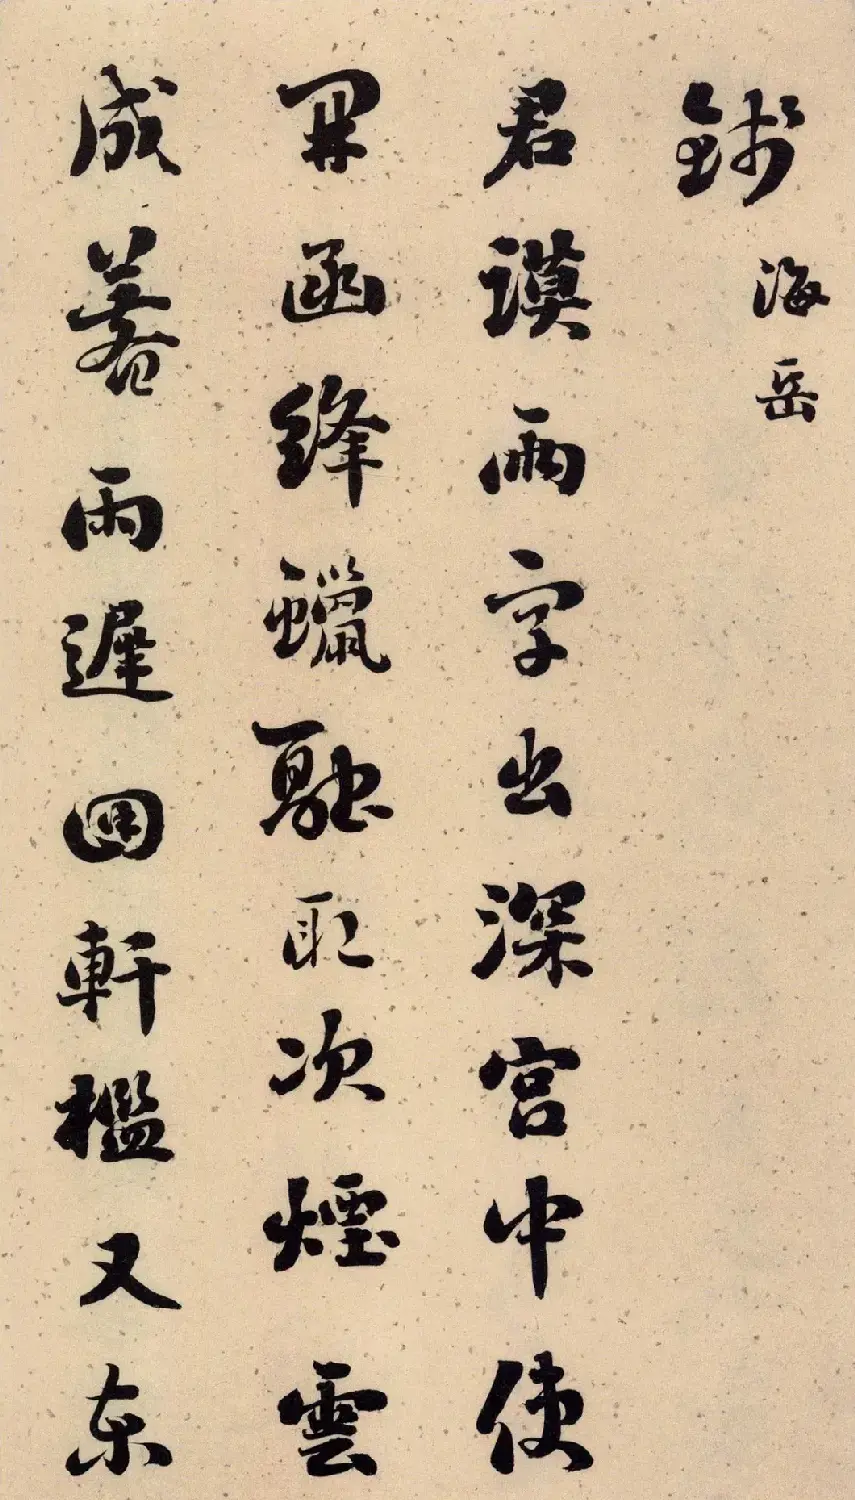 錢
海岳
君謨兩字出深宮中使
開函絳蠟融取次煙雲
成暮雨遲回軒檻又東